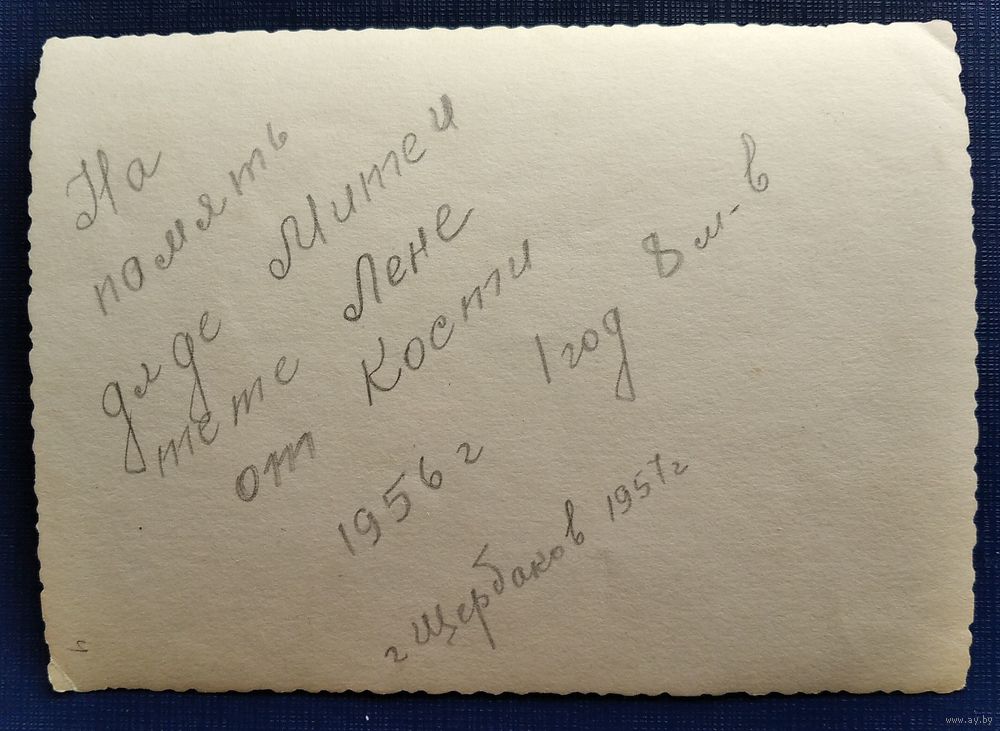 На
память
дяде Митеи
тете Лене
от Кости 1 год 8 м-в
1956 г
г Щербаков 1957г
www.ay.by